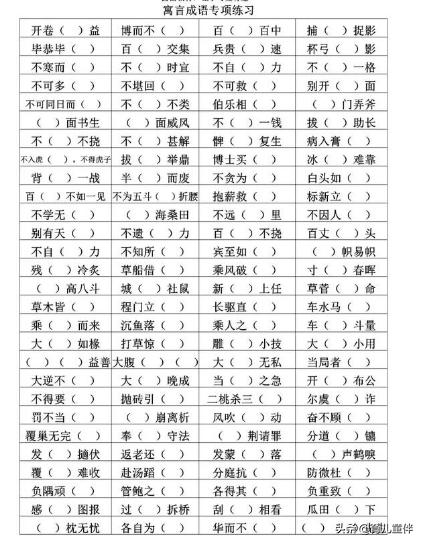 寓言成语专项练习
开卷（ ）益 博而不（ ） 百（ ）百中 捕（ ）捉影
毕恭毕（ ） 百（ ）交集 兵贵（ ）速 杯弓（ ）影
不寒而（ ） 不（ ）时宜 不自（ ）力 不（ ）一格
不可多（ ） 不堪回（ ） 不可救（ ） 别开（ ）面
不可同日而（ ） 不（ ）不类 伯乐相（ ） （ ）门弄斧
（ ）面书生 （ ）面威风 不（ ）一钱 拔（ ）助长
不（ ）不挠 不（ ）甚解 髀（ ）复生 病入膏（ ）
不入虎（ ），不得虎子 拔（ ）举鼎 博士买（ ） 冰（ ）难靠
背（ ）一战 半（ ）而废 不贪为（ ） 白头如（ ）
百（ ）不如一见 不为五斗（ ）折腰 抱薪救（ ） 标新立（ ）
不学无（ ） （ ）海桑田 不远（ ）里 不因人（ ）
别有天（ ） 不遗（ ）力 百（ ）不挠 百丈（ ）头
不自（ ）力 不知所（ ） 宾至如（ ） （ ）帜易帜
残（ ）冷炙 草船借（ ） 乘风破（ ） 寸（ ）春晖
（ ）高八斗 城（ ）社鼠 新（ ）上任 草菅（ ）命
草木皆（ ） 程门立（ ） 长驱直（ ） 车水马（ ）
乘（ ）而来 沉鱼落（ ） 乘人之（ ） 车（ ）斗量
大（ ）如椽 打草惊（ ） 雕（ ）小技 大（ ）小用
（ ）（ ）益善 大腹（ ）（ ） 大（ ）无私 当局者（ ）
大逆不（ ） 大（ ）晚成 当（ ）之急 开（ ）布公
不得要（ ） 抛砖引（ ） 二桃杀三（ ） 尔虞（ ）诈
罚不当（ ） （ ）崩离析 风吹（ ）动 奋不顾（ ）
覆巢无完（ ） 奉（ ）守法 （ ）荆请罪 分道（ ）镳
发（ ）擿伏 返老还（ ） 发蒙（ ）落 （ ）声鹤唳
覆（ ）难收 赴汤蹈（ ） 分庭抗（ ） 防微杜（ ）
负隅顽（ ） 管鲍之（ ） 各得其（ ） 负重致（ ）
感（ ）图报 过（ ）拆桥 刮（ ）相看 瓜田（ ）下
（ ）枕无忧 各自为（ ） 华而不（ ） （
头条@ 儿童伴